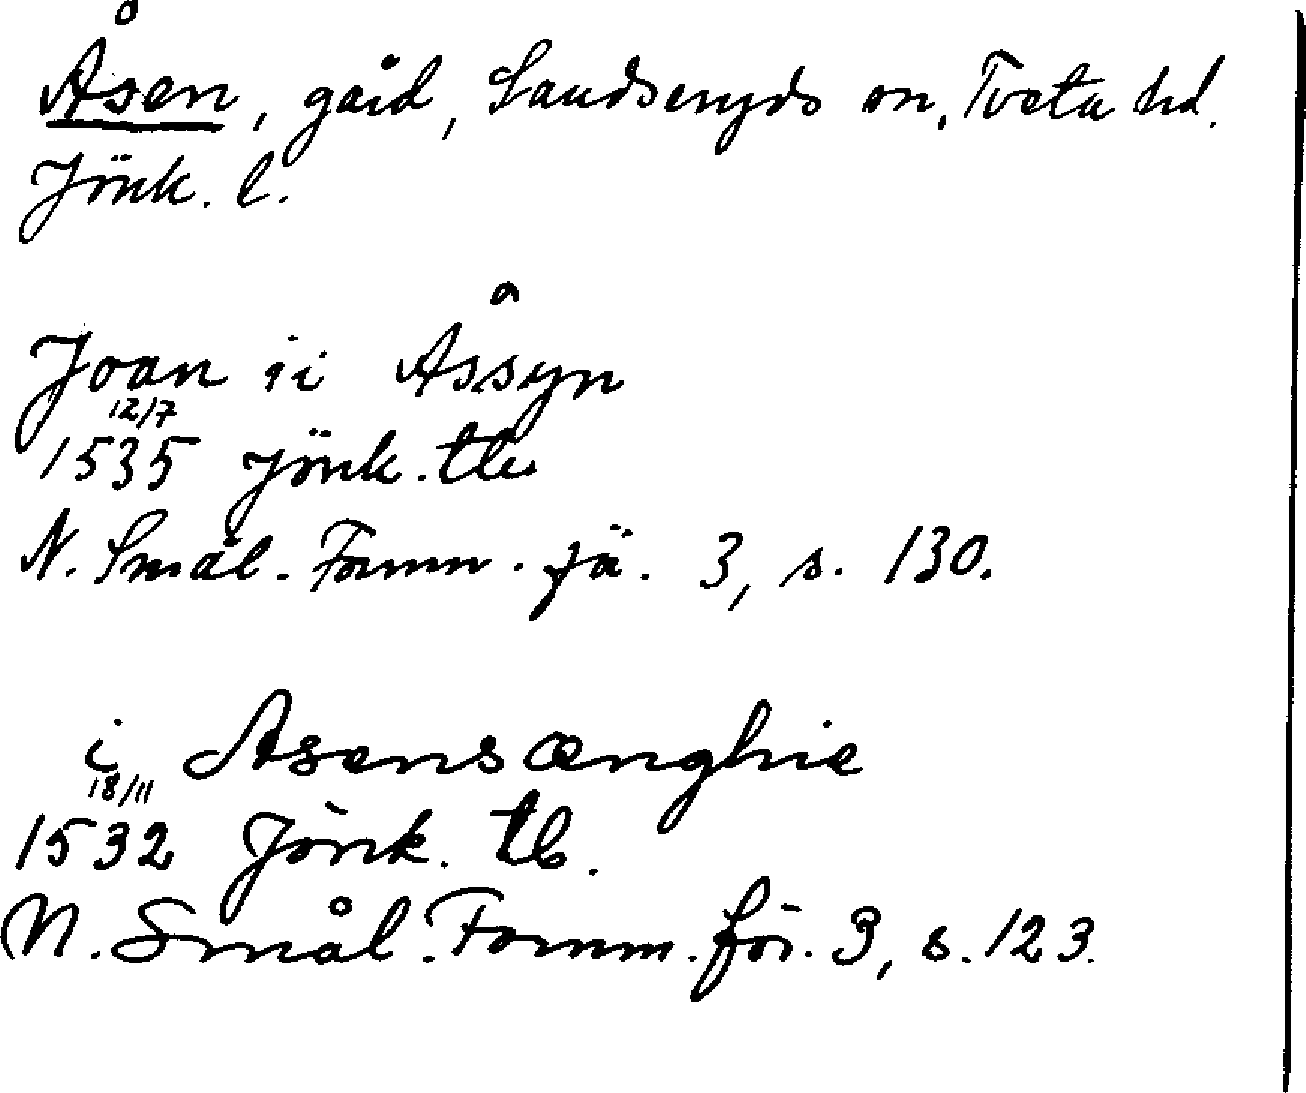 Åsen, gård, Sandseryds sn, Tveta hd.
Jönk. l.
Joan ii Åssyn
12/7
1535 Jönk. tb
N. Smål. Fornm. fö. 3, s. 130.
i Asensænghie
18/11
1532 Jönk. tb.
N. Smål. Fornm. för. 3, s. 123.